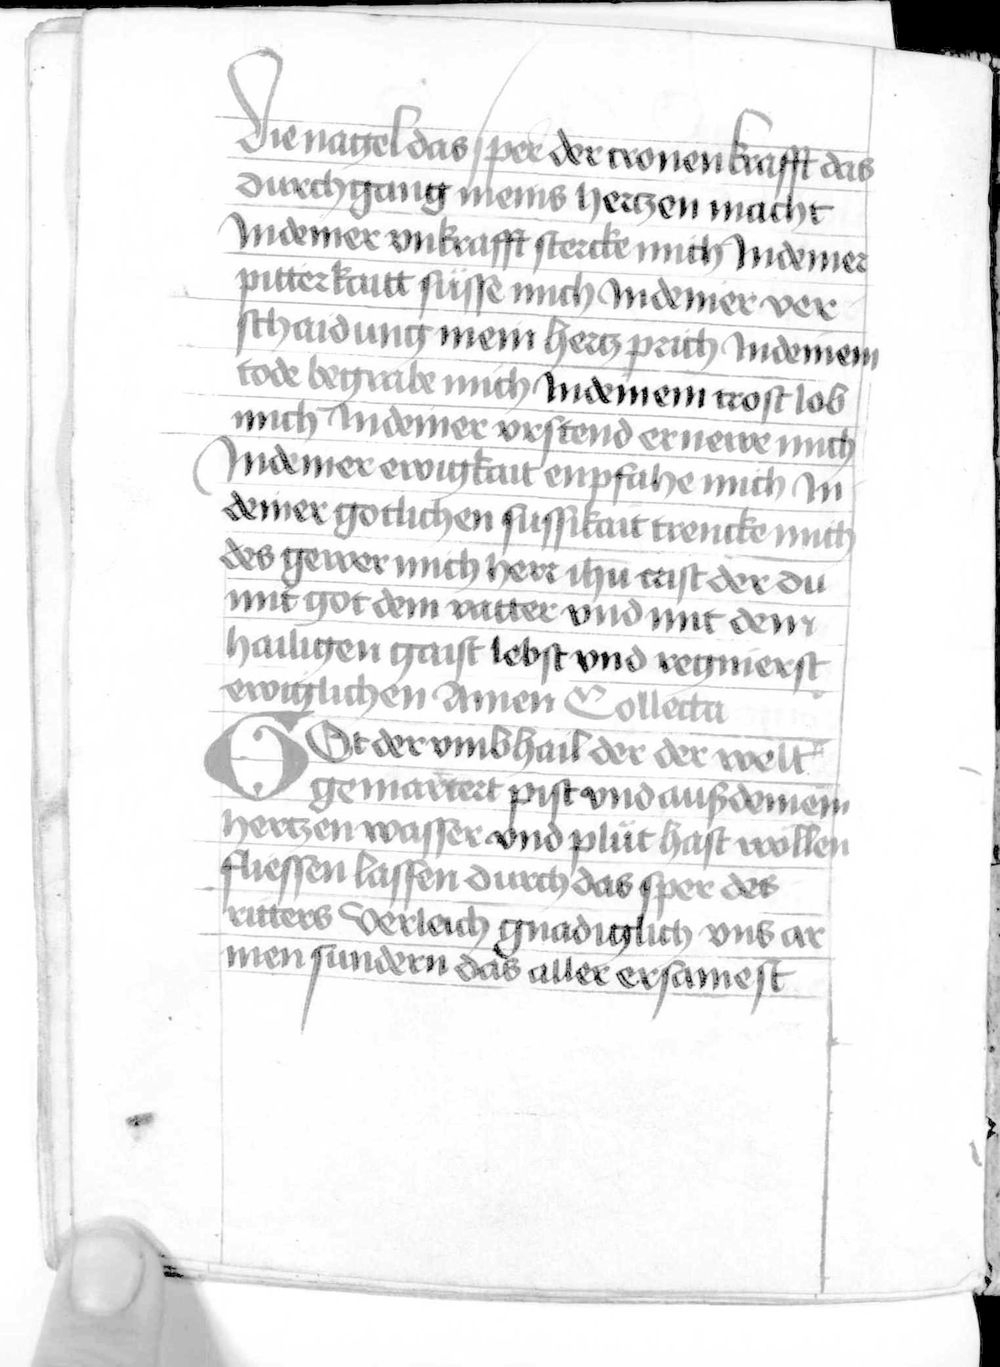 Die nagel das sper der cronen krafft das
durchgang meins hertzen macht
In deiner vnkrafft stercke mich In deiner
pitterkaitt süsse mich In deiner ver
schaidung mein hertz prich In deinem
tode begrabe mich In deinem trost lob
mich In deiner vrstend ernewe mich
In deiner ewigkait enpfahe mich In
deiner gotlichen sussikait trencke mich
des gewer mich herr ihu crist der du
mit got dem vatter vnd mit dem
hailigen gaist lebst vnd regnierst
ewiglichen Amen Collecta
GOt der vmb hail der der welt
gemartert pist vnd auß deinem
hertzen wasser vnd plüt hast wöllen
fliessen lassen durch das sper des
ritters Verleich gnadiglich vns ar
men sundern das aller ersamest